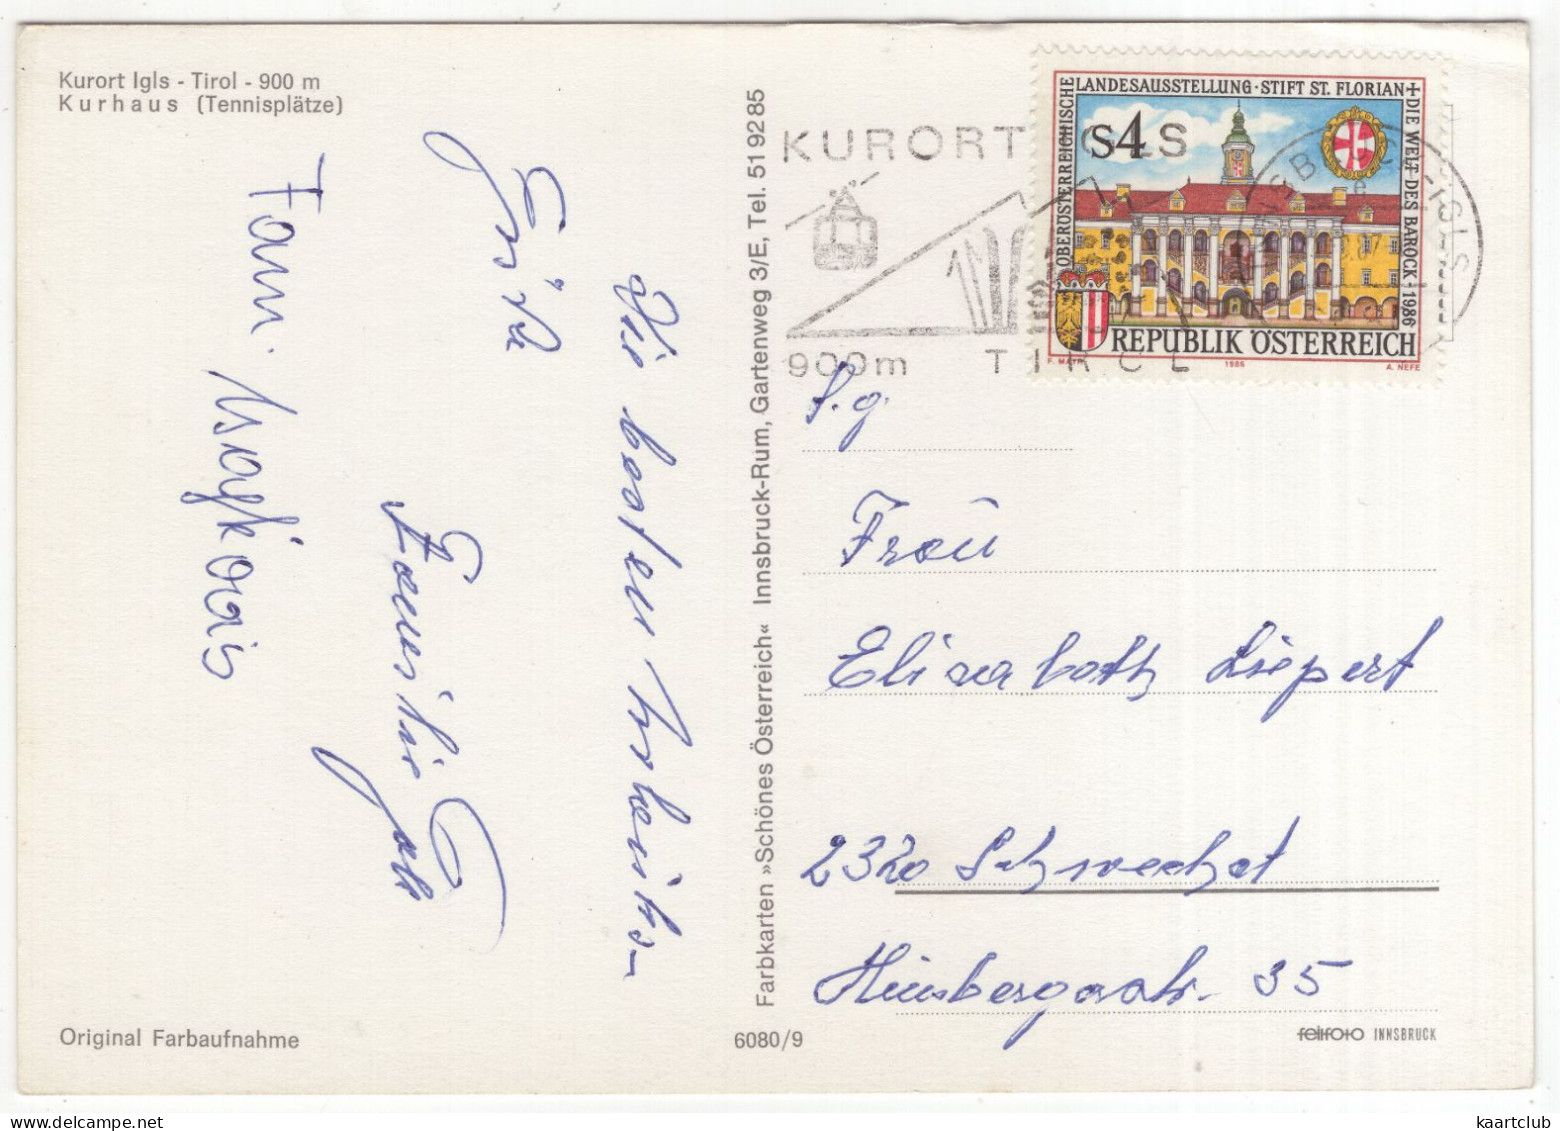 Kurort Igls - Tirol - 900 m
Kurhaus (Tennisplätze)
Die besten Urlaubs-
Grüße
Familie
Fam.
Farbkarten »Schönes Österreich« Innsbruck-Rum, Gartenweg 3/E, Tel. 5 19 2 85
KURORT IGLS
900m TIROL
INNSBRUCK-IGLS
OBERÖSTERREICHISCHE LANDESAUSSTELLUNG · STIFT ST. FLORIAN + DIE WELT DES BAROCK · 1986
S4
REPUBLIK ÖSTERREICH
F. MAYR 1986 A. NEFE
S.g.
Frau
Elisabeth Liepert
2320 Schwechat
35
Original Farbaufnahme
6080/9
feitfoto INNSBRUCK
kaartclub